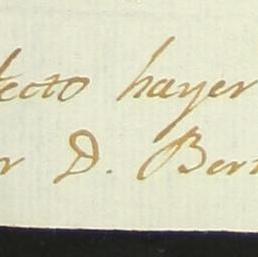 ecto hayer
r D. Ber